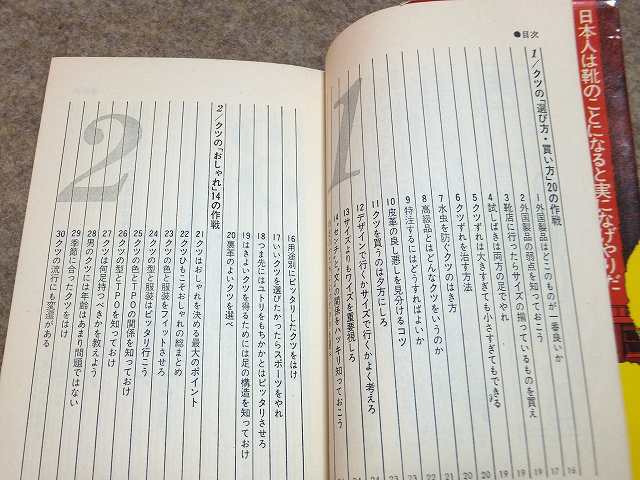 日本人は靴のことになると実になげやりだ
●目次
1
1/クツの「選び方・買い方」20の作戦
1 外国製品はどこのものが一番良いか
2 外国製品の弱点を知っておこう
3 靴店に行ったらサイズの揃っているものを買え
4 試しばきは両方の足でやれ
5 クツずれは大きすぎても小さすぎてもできる
6 クツずれを治す方法
7 水虫を防ぐクツのはき方
8 高級品とはどんなクツをいうのか
9 特注するにはどうすればよいか
10 皮革の良し悪しを見分けるコツ
11 クツを買うのは夕方にしろ
12 デザインで行くかサイズで行くかよく考えろ
13 サイズよりもワイズを重要視しろ
14 "センチ"と"文"の関係をハッキリ知っておこう
16
17
19
19
19
20
20
2
2/クツの「おしゃれ」14の作戦
16 用途別にピッタリしたクツをはけ
17 いいクツを選びたかったらスポーツをやれ
18 つま先にはユトリをもちかかとはピッタリさせろ
19 はきよいクツを得るためには足の構造を知っておけ
20 裏革のよいクツを選べ
21 クツはおしゃれを決める最大のポイント
22 クツひもこそおしゃれの総まとめ
23 クツの色と服装をフィットさせろ
24 クツの型と服装はピッタリ行こう
25 クツの色とTPOの関係を知っておけ
26 クツの型とTPOを知っておけ
27 クツは何足持つべきかを教えよう
28 男のクツには年齢はあまり問題ではない
29 季節に合ったクツをはけ
30 クツの流行にも変遷がある